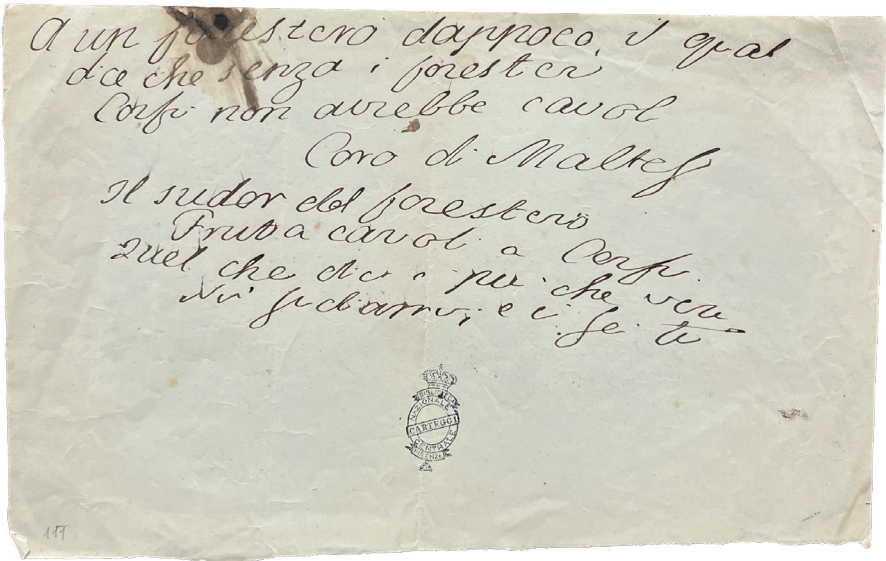 A un forestero dappoco, il qual
dice che senza i forester
Corfù non avrebbe cavol
Coro di Maltes
Il sudor del forestero
Frutta cavoli a Corfù
Quel che dic è più che ver
Noi e
BIBLIOTECA
NAZIONALE
CARTEGGI
CENTRALE
FIRENZE
117